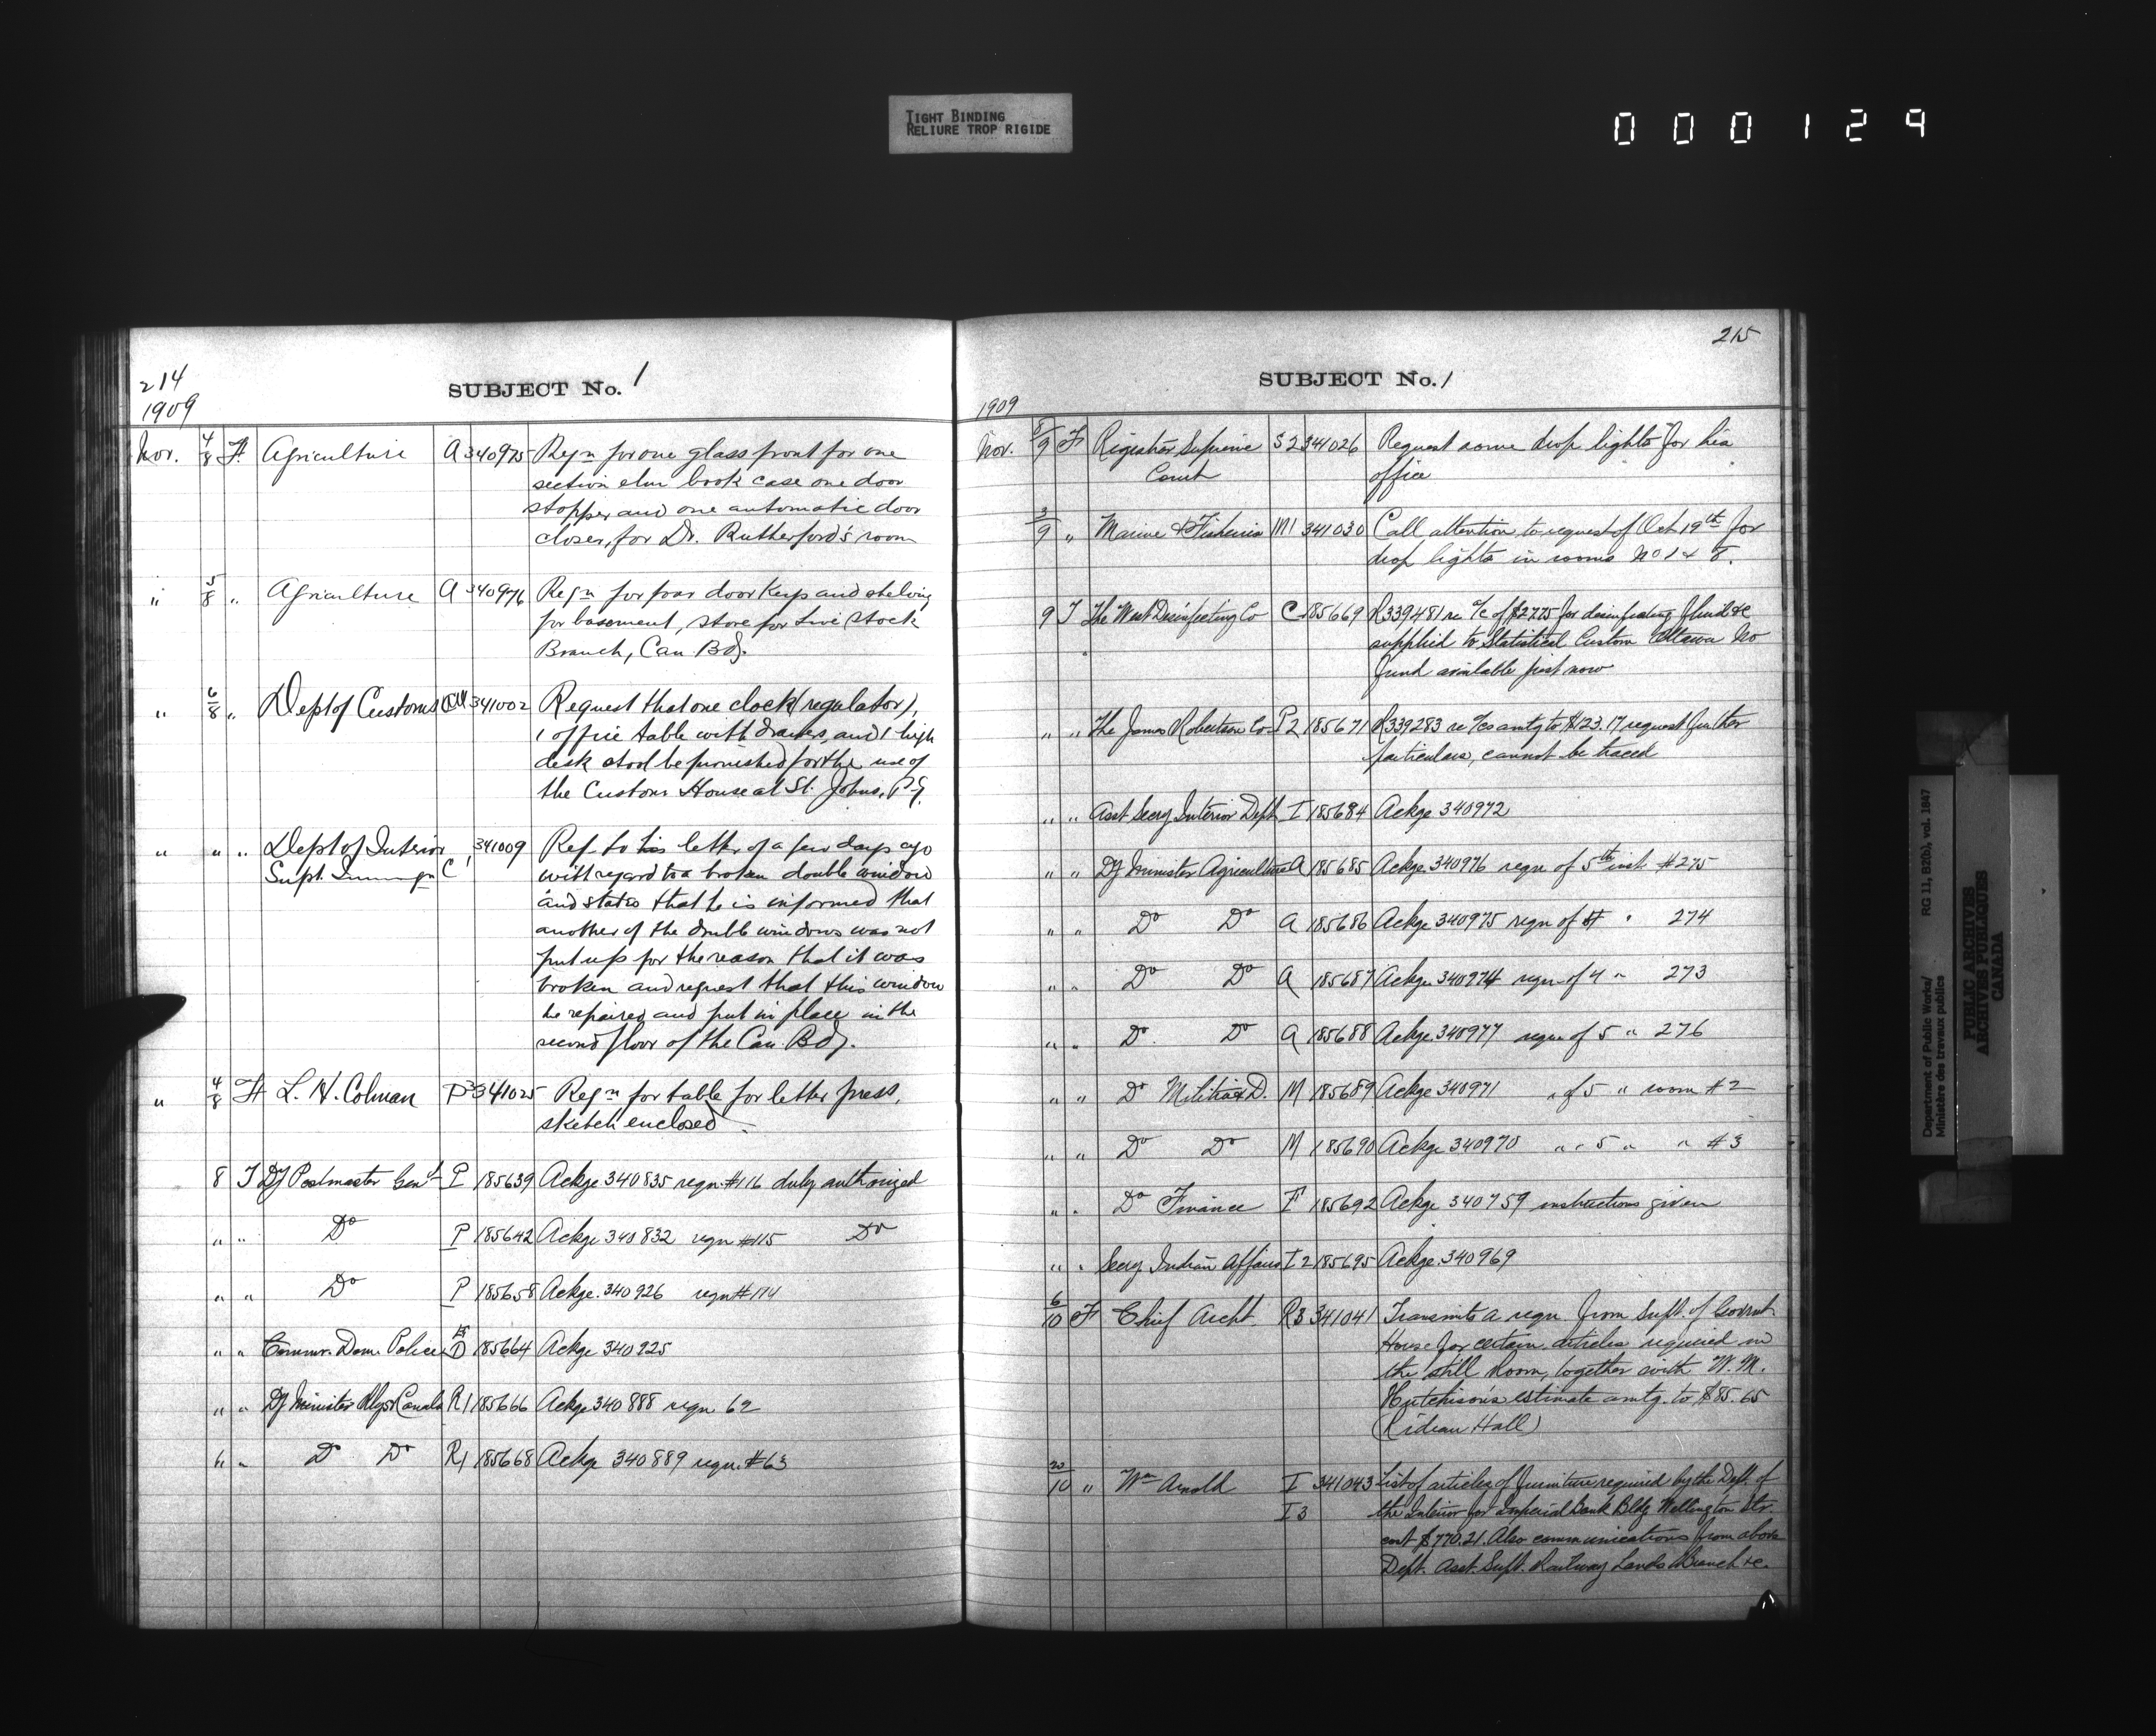 TIGHT BINDING
RELIURE TROP RIGIDE
000129
214
1909
SUBJECT No. 1
Nov. 4/8 F. Agriculture A 340975 Reqn for one glass front for one
section elm book case one door
stopper and one automatic door
closer, for Dr. Rutherford's room
" 5/8 " Agriculture A 340976 Reqn for four door keys and shelving
for basement, store for Live Stock
Branch, Can Bdg.
" 6/8 " Dept of Customs 341002 Request that one clock (regulator),
1 office table with drawers, and 1 high
desk stool be furnished for the use of
the Customs House at St. Johns, P.Q.
" " " Dept of Interior 341009 Ref. to his letter of a few days ago
Supt. C1 with regard to a broken double window
and states that he is informed that
another of the double windows was not
put up for the reason that it was
broken and request that this window
be repaired and put in place in the
second floor of the Can. Bdg.
" 4/8 F L. H. Colman P3 341025 Reqn for table for letter press,
sketch enclosed.
8 T Dy Postmaster Genl P 185639 Ackge 340835 reqn #116 duly authorized
" " Do P 185642 Ackge 340832 reqn #115 Do
" " Do P 185658 Ackge. 340926 reqn #114
" " Commr. Dom. Police D 185664 Ackge 340925
" " Dy Minister Rlys & Canals R1 185666 Ackge 340888 reqn 62
" " Do Do R1 185668 Ackge 340889 reqn. #63
215
SUBJECT No. 1
1909
Nov. 8/9 F Registrar Supreme S2 341026 Request some drop lights for his
Court office
3/9 " Marine & Fisheries M1 341030 Call attention to request of Oct 19th for
drop lights in rooms No 1 & 8.
9 T The West Disinfecting Co C 185669 R339481 re a/c of $27.75 for disinfecting fluid &c
supplied to Statistical Custom Ottawa No
fund available just now
" " The James Robertson Co. P2 185671 R339283 re a/cs amtg to $123.17, request further
particulars, cannot be traced
" " Asst Secy Interior Dept I 185684 Ackge 340972
" " Dy Minister Agriculture A 185685 Ackge. 340976 reqn of 5th inst. #275
" " Do Do A 185686 Ackge 340975 reqn of 4 " 274
" " Do Do A 185687 Ackge 340974 reqn of 4 " 273
" " Do Do A 185688 Ackge. 340977 reqn of 5 " 276
" " Do Militia & D. M 185689 Ackge 340971 " of 5 " room #2
" " Do Do M 185690 Ackge 340970 " " 5 " " #3
" " Do Finance F 185692 Ackge 340759 instructions given
" " Secy Indian Affairs I2 185695 Ackge. 340969
6/10 F Chief Archt R3 341041 Transmits a reqn from Supt. of Govrmt
House for certain articles required in
the still Room, together with W. M.
Hutchison's estimate amtg. to $85.65
(Rideau Hall)
20/10 " Wm Arnold I 341043 List of articles of furniture required by the Dept. of
I3 the Interior for Imperial Bank Bldg Wellington Str.
cost $770.21. Also communications from above
Dept. Asst. Supt. Railway Lands Branch &c.
Department of Public Works/ RG 11, B2(b), vol. 1847
Ministère des travaux publics
PUBLIC ARCHIVES
ARCHIVES PUBLIQUES
CANADA